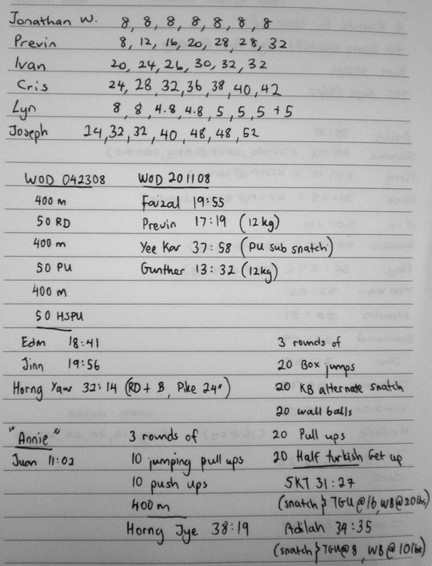 Jonathan W. 8, 8, 8, 8, 8, 8, 8
Previn 8, 12, 16, 20, 28, 28, 32
Ivan 20, 24, 26, 30, 32, 32
Cris 24, 28, 32, 36, 38, 40, 42
Lyn 8, 8, 4.8, 4.8, 5, 5, 5 +5
Joseph 24, 32, 32, 40, 48, 48, 52
WOD 042308
400 m
50 RD
400 m
50 PU
400 m
50 HSPU
Edm 18:41
Jinn 19:56
Horng Yaw 32:14 (RD + B, Pike 24")
WOD 201108
Faizal 19:55
Previn 17:19 (12kg)
Yee Kar 37:58 (PU sub snatch)
Gunther 13:32 (12kg)
"Annie"
Juan 11:02
3 rounds of
10 jumping pull ups
10 push ups
400 m
Horng Jye 38:19
3 rounds of
20 Box jumps
20 KB alternate snatch
20 wall balls
20 Pull ups
20 Half turkish Get up
SKT 31:27
(snatch } TGU @16, WB @20lbs)
Adilah 34:35
(snatch } TGU@8, WB @10lbs)